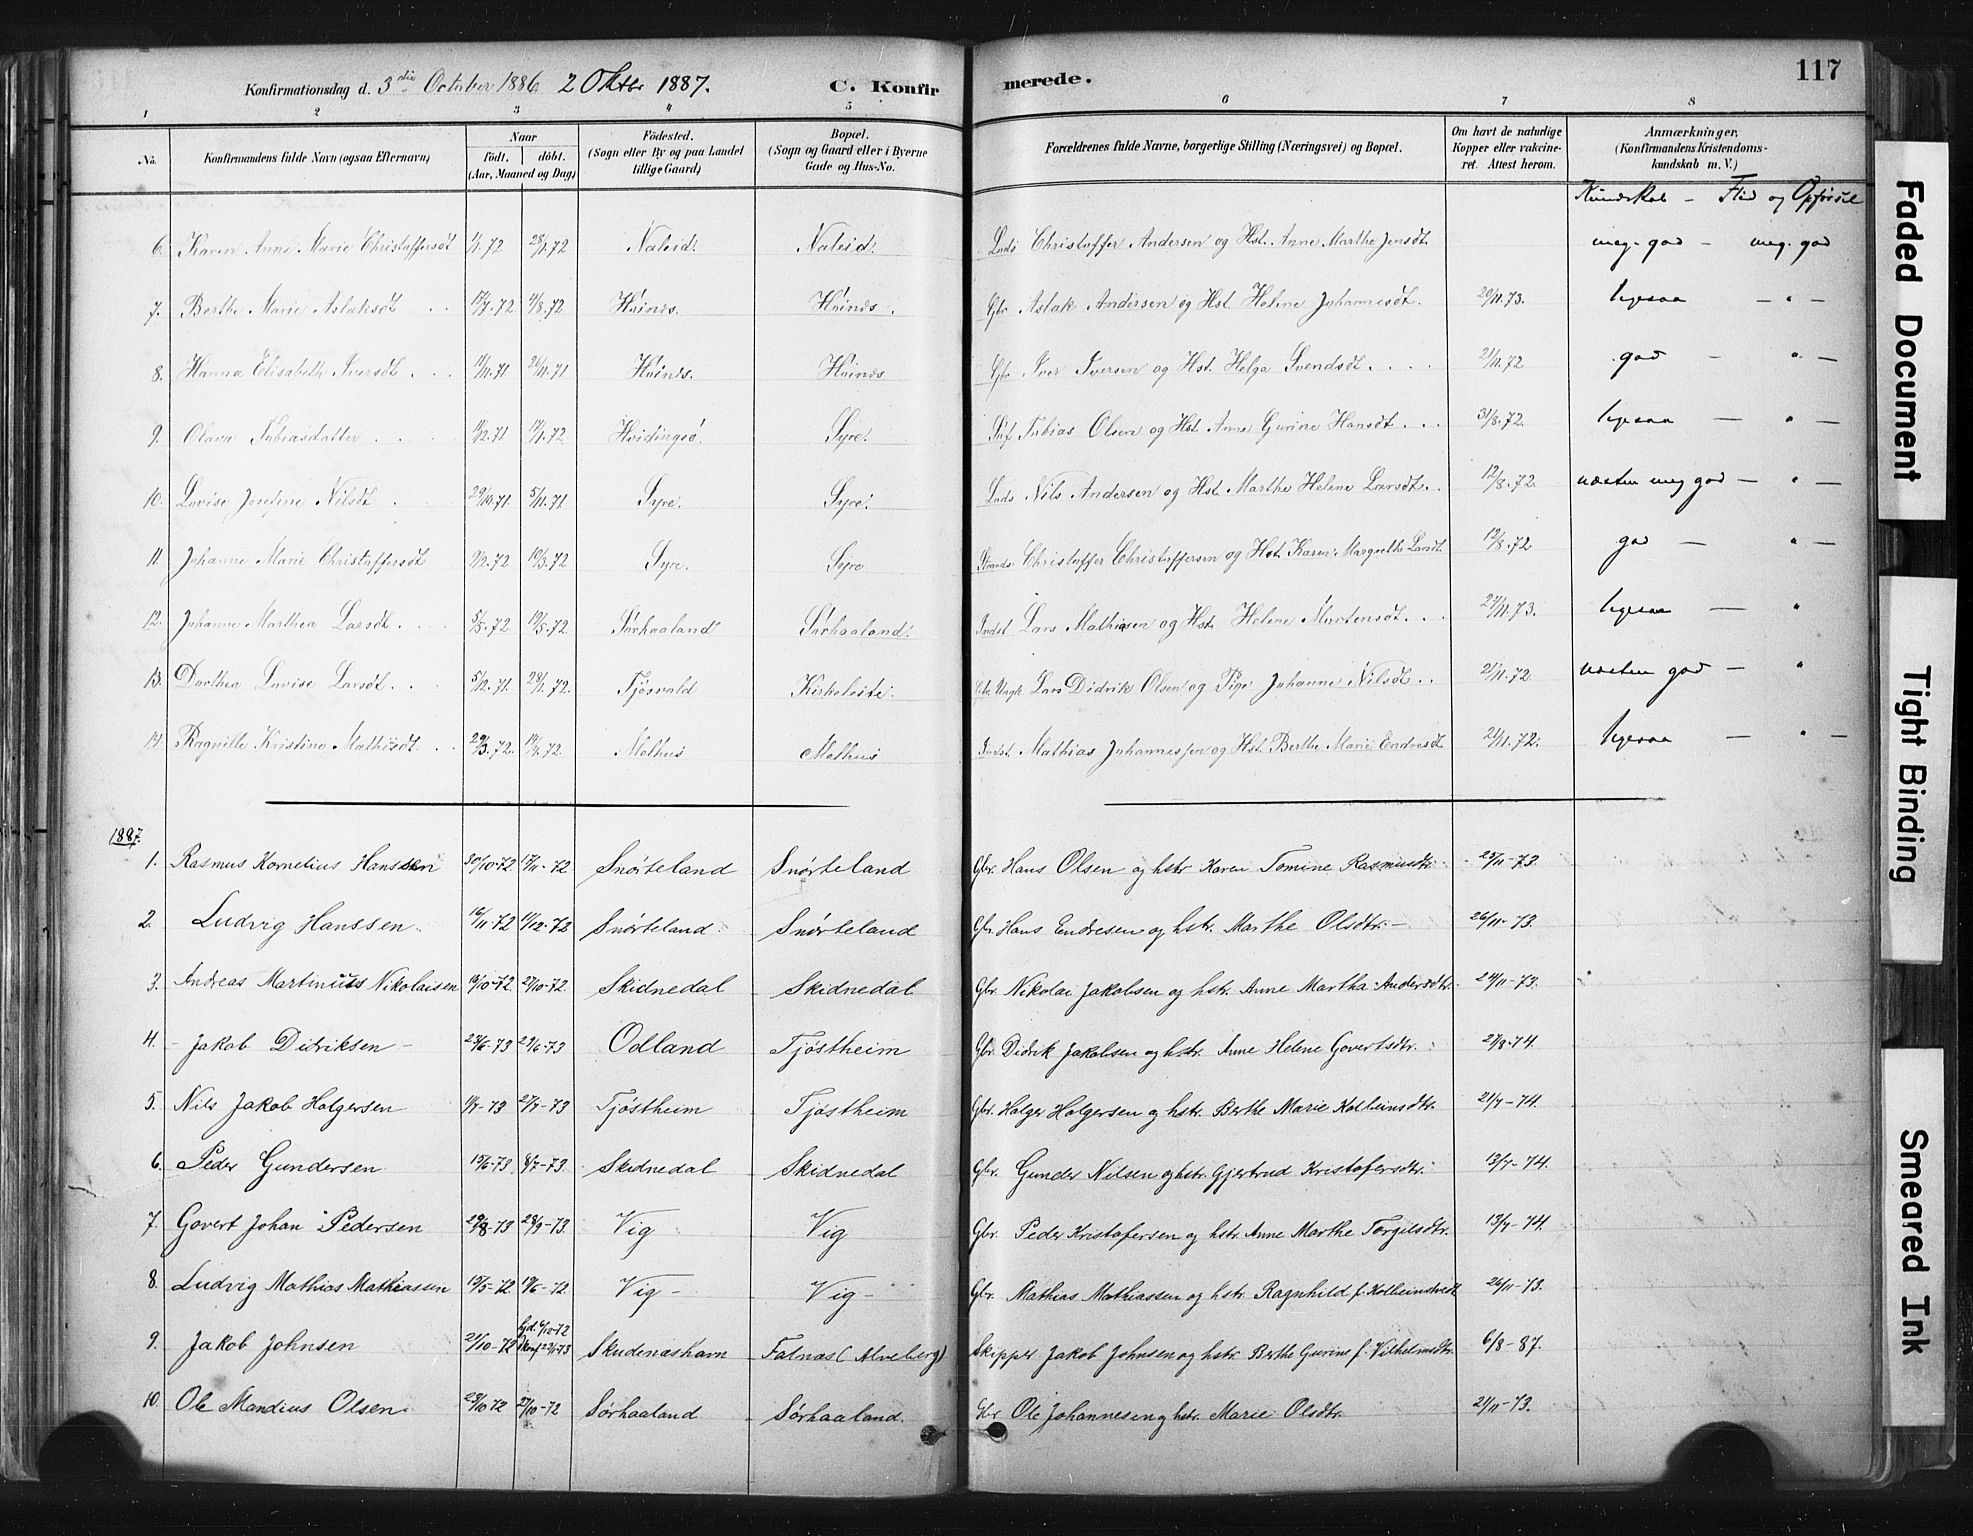 Konfirmationsdag d. 3die October 1886. 2 Oktbr 1887. C. Konfirmerede. 117
1 2 3 4 5 6 7 8
No. Konfirmandens fulde Navn (ogsaa Efternavn) Naar födt. döbt. (Aar, Maaned og Dag) Födested. (Sogn eller By og paa Landet tillige Gaard) Bopæl. (Sogn og Gaard eller i Byerne Gade og Hus-No. Forældrenes fulde Navne, borgerlige Stilling (Næringsvei) og Bopæl. Om havt de naturlige Kopper eller vaccineret. Attest herom. Anmærkninger. (Konfirmandens Kristendomskundskab m. V.)
Kundskab - Flid og Opførsel
6. Karen Anne Marie Christoffersdt 28/1.72 Naleid. Naleid. Christoffer Andersen og Hst. Anne Marthe Jensdt. meg. god - meg. god
7. Berthe Marie Aslaksdt 17/7.72 4/8.72 Hvinds. Hvinds. Gbr Aslak Andersen og Hst Helene Johannesdt. 20/11.73. ligesaa - " -
8. Hanna Elisabeth Iversdt 11/11.71 26/11.71 Hvinds. Hvinds Gbr Iver Iversen og Hst. Helga Svendsdt. 21/11.72 god - " -
9. Olava Tobiasdatter 11/12.71 14/1.72. Hvidingsø. Syre. Tobias Olsen og Hst. Anne Gurine Hansdt 31/8.72. ligesaa - " -
10. Lovise Josefine Nilsdt 29/10.71. 5/11.71 Syre. Syre. Nils Andersen og Hst. Marthe Helene Larsdt. 12/8.72. næsten meg god - " -
11. Johanne Marie Christoffersdt 9/2.72 10/3.72 Syre. Syre Christoffer Christoffersen og Hst. Karen Margrethe Larsdt 12/8.72 god - " -
12. Johanne Marthea Larsdt. 5/5.72. 19/5.72 Sørhaaland. Sørhaaland. Indst Lars Mathiasen og Hst. Helene Mortensdt. 24/11.73. ligesaa - "
13. Dorthea Lovise Larsdt. 5/12.71 28/1.72. Tjøsvold Kirkeleite. Lars Didrik Olsen og Pige Johanne Nilsdt. 21/11.72. næsten god - "
14. Ragnille Kristine Mathisdt 29/3.72. 14/4.72. Mælhus Mælhus Indst. Mathias Johannessen og Hst Berthe Marie Endresdt 21/11.72. ligesaa - " -
1887.
1. Rasmus Kornelius Hanssen 30/10-72 17/11-72 Snørteland Snørteland Gbr. Hans Olsen og hstr Karen Tomine Rasmusdtr. 25/11-73
2. Ludvig Hanssen. 16/11-72 11/12-72 Snørteland. Snørteland Gbr. Hans Endresen og hstr. Marthe Olsdtr. - 26/11-73.
3. Andreas Martinius Nikolaisen 10/10-72. 27/10-72. Skidnedal Skidnedal Gbr. Nikolai Jakobsen og hstr. Anne Martha Andersdtr. 24/11-73.
4. - Jakob Didriksen - 23/6-73 29/6-73 Odland Tjøstheim Gbr. Didrik Jakobsen og hstr. Anne Helene Govertsdtr. 27/8-74.
5. Nils Jakob Holgersen 11/7-73 27/7-73 Tjøstheim Tjøstheim Gbr. Holger Holgersen og hstr. Berthe Marie Kolbeinsdtr. 21/7-74.
6. Peder Gundersen 15/6-73 8/7-73. Skidnedal Skidnedal Gbr. Gunder Nilsen og hstr. Gjertrud Kristofersdtr. 13/7-74.
7. Govert Johan Pedersen 29/8-73 28/9-73. Vig Vig Gbr. Peder Kristofersen og hstr. Anne Marthe Torgilsdtr. 13/7-74.
8. Ludvig Mathias Mathiasen 19/5-72 19/6-72 Vig - Vig - Gbr. Mathias Mathiassen og hstr. Ragnhild f. Kolbeinstvedt 26/11-73.
9. Jakob Johnsen 21/10-72 hjd. 6/12-72 23/1-73 Skudenæshavn Falnæs (Alveberg) Skipper Jakob Johnsen og hstr. Berthe Gurine f. Vilhelmsdtr. 6/8-87.
10. Ole Mandius Olsen 23/10 72 27/10-72 Sørhaaland Sørhaaland. Gbr Ole Johannesen og hstr. Marie Olsdtr. 21/11-73.
Faded Document
Tight Binding
Smeared Ink